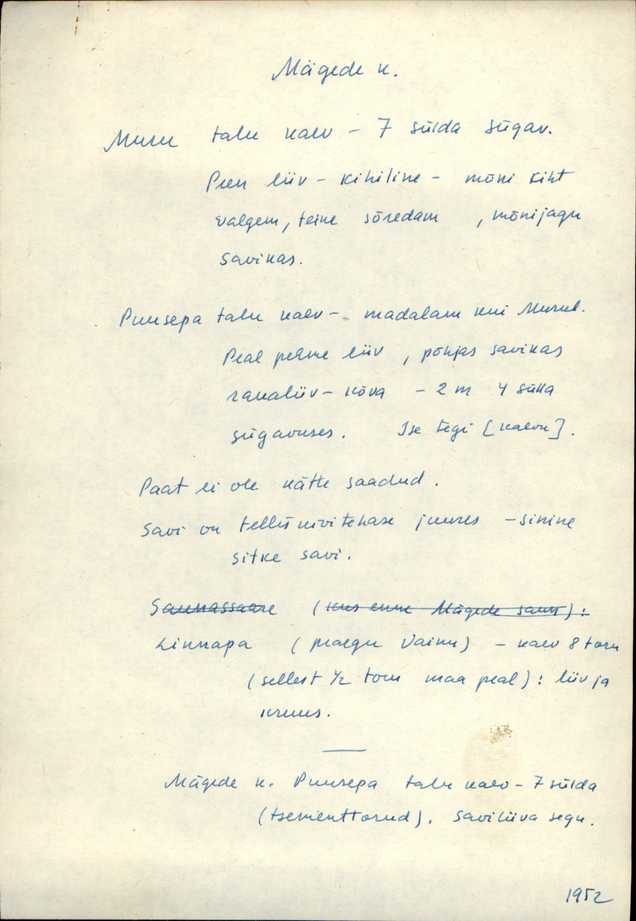 Mägede k.
Muru talu kaev – 7 sülda sügav.
Peen liiv – kihiline – mõni kiht
valgem, teine sõredam , mõnijagu
savikas.
Puusepa talu kaev – madalam kui Murul.
Peal peene liiv , põhjas savikas
ranaliiv – kõva – 2 m 4 sülla
sügavuses. Ise tegi [kaevu].
Paat ei ole kätte saadud.
Savi on telliskivitehase juures – sinine
sitke savi.
Saunassaare (kus enne Mägede saun):
Linnapa (praegu Vainu) – kaev 8 toru
(sellest 1/2 toru maa peal): liiv ja
kruus.
Mägede k. Puusepa talu kaev – 7 sülda
(tsementtorud). Saviliiva segu.
1952